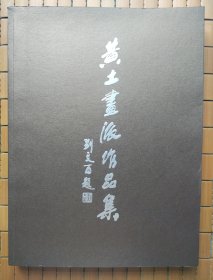 黄土畫派作品集
刘文西题